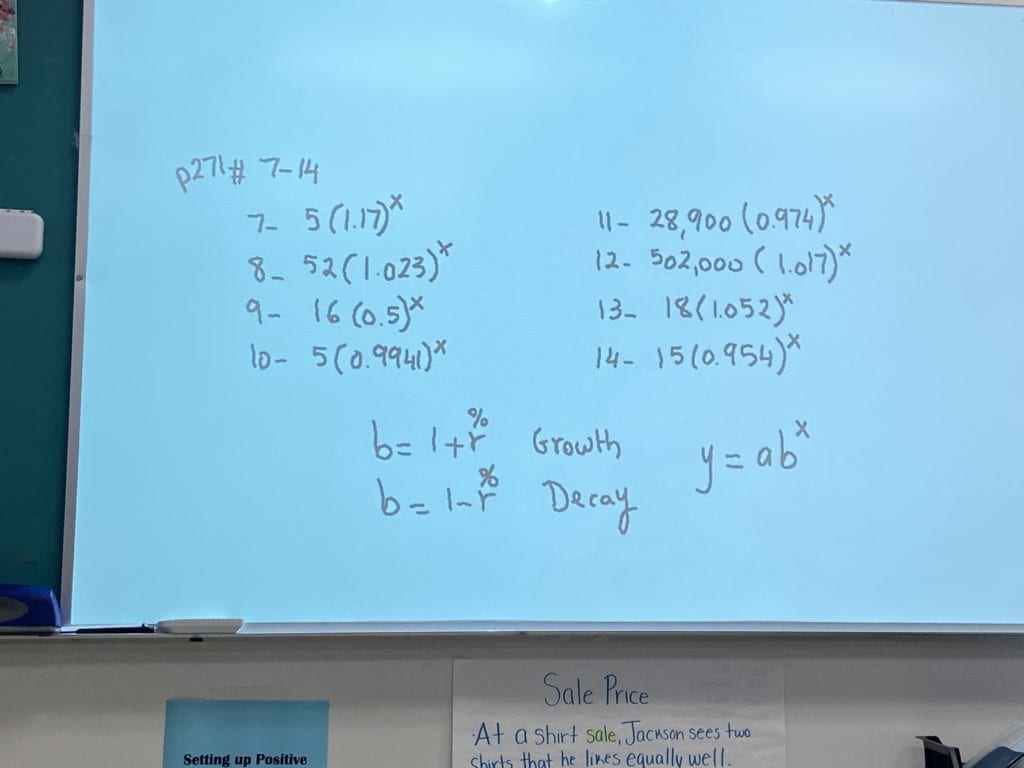 p271# 7-14
7- 5(1.17)^x
8- 52(1.023)^x
9- 16(0.5)^x
10- 5(0.9941)^x
11- 28,900(0.974)^x
12- 502,000(1.017)^x
13- 18(1.052)^x
14- 15(0.954)^x
b= 1+r% Growth
b= 1-r% Decay
y=ab^x
Setting up Positive
Sale Price
At a shirt sale, Jackson sees two
shirts that he likes equally well.